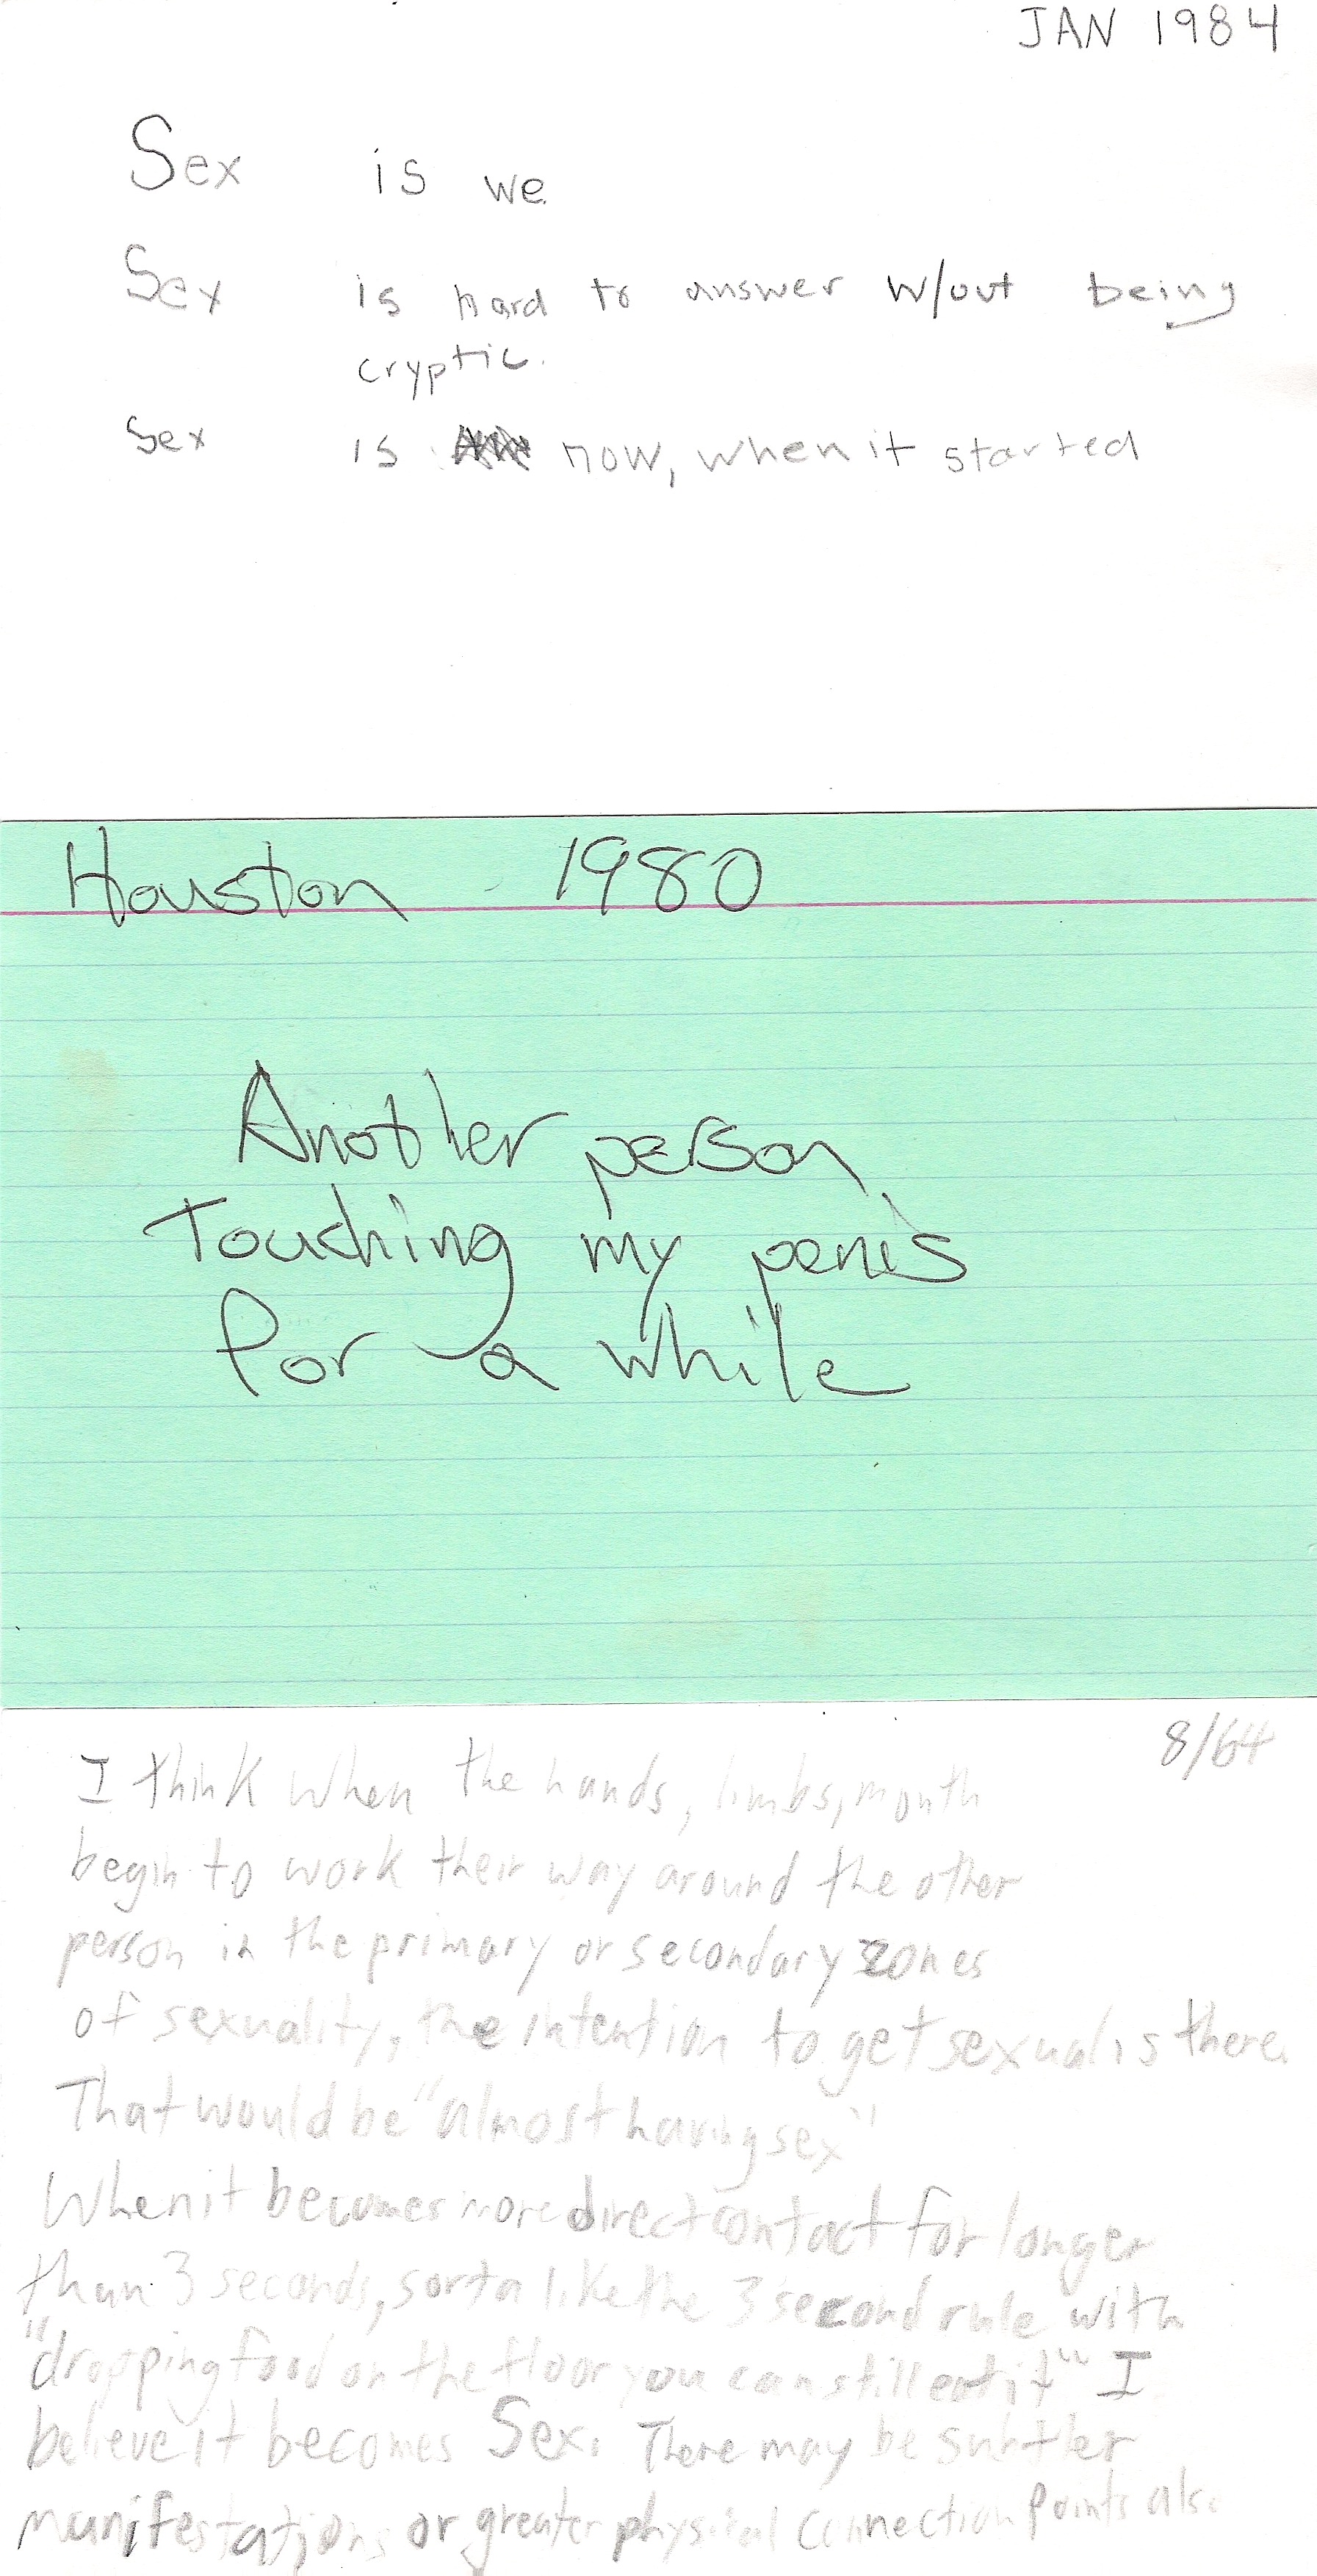 JAN 1984
Sex is we
Sex is hard to answer w/out being
cryptic.
Sex is now, when it started
Houston 1980
Another person
Touching my penis
for a while
8/64
I think when the hands, limbs, mouth
begin to work their way around the other
person in the primary or secondary zones
of sexuality, the intention to get sexual is there.
That would be "almost having sex"
When it becomes more direct contact for longer
than 3 seconds, sorta like the 3 second rule with
"dropping food on the floor you can still eat it" I
believe it becomes Sex. There may be subtler
manifestations or greater physical connection points also